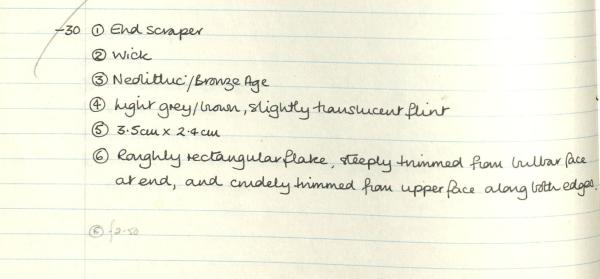 -30 ① End scraper
② Wick
③ Neolithic/Bronze Age
④ Light grey/brown, slightly translucent flint
⑤ 3.5cm x 2.4cm
⑥ Roughly rectangular flake, steeply trimmed from bulbar face
at end, and crudely trimmed from upper face along both edges.
⑧ £2.50